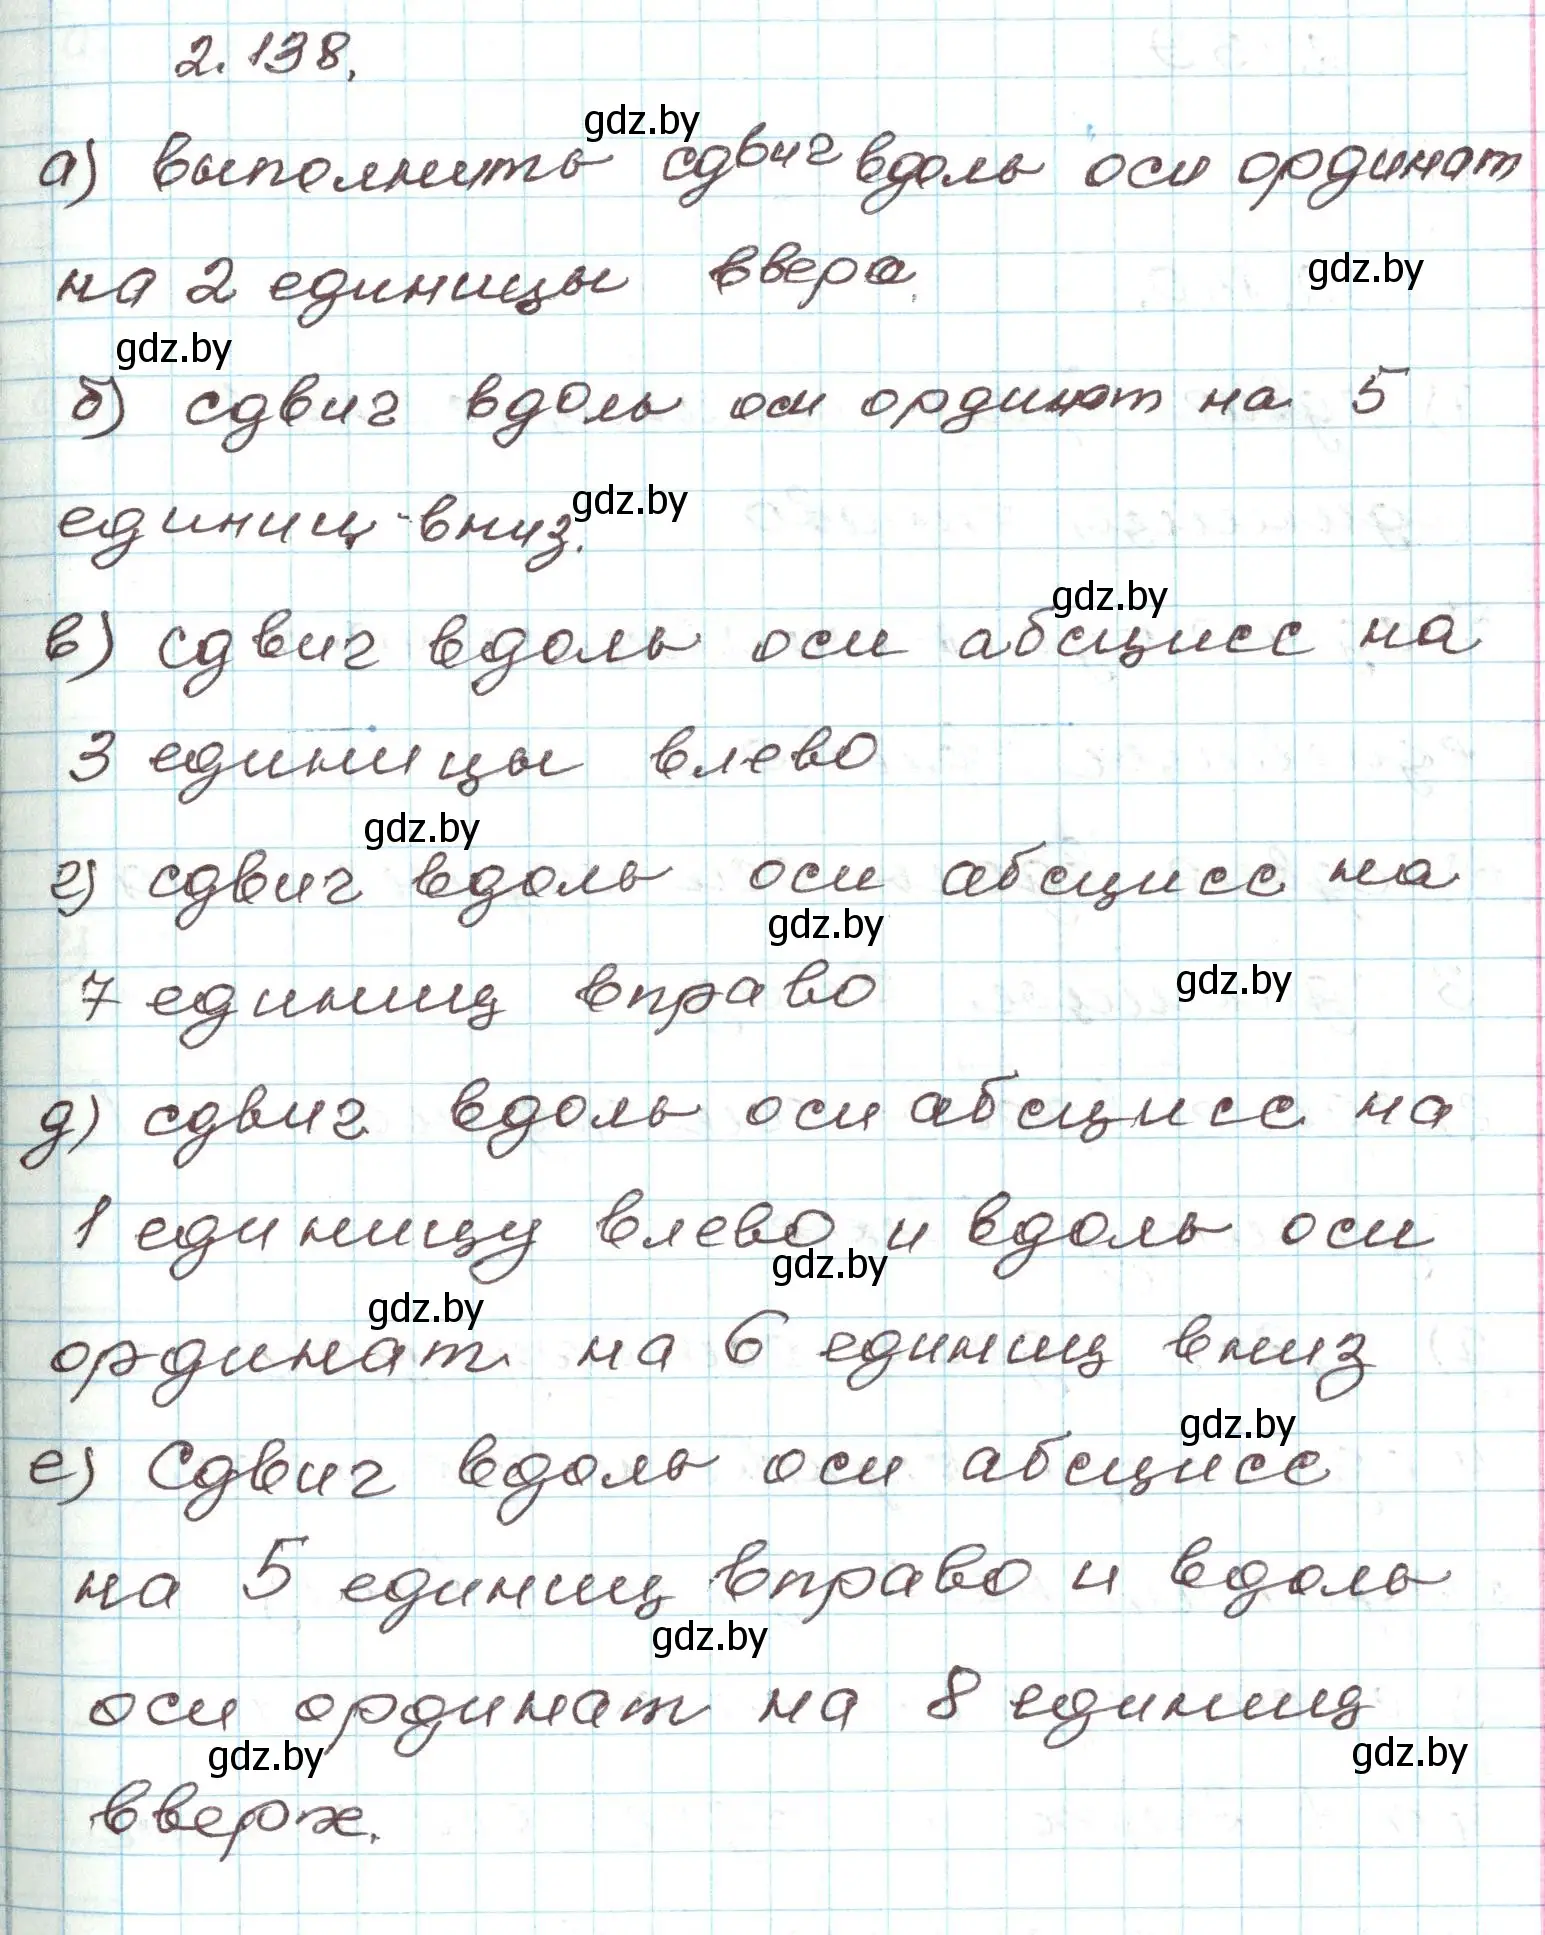 2.138.
gdz.by
а) выполнить сдвиг вдоль оси ординат
на 2 единицы вверх.
gdz.by
gdz.by
б) сдвиг вдоль оси ординат на 5
единиц вниз.
gdz.by
gdz.by
в) сдвиг вдоль оси абсцисс на
3 единицы влево
gdz.by
г) сдвиг вдоль оси абсцисс на
gdz.by
7 единиц вправо
gdz.by
д) сдвиг вдоль оси абсцисс на
1 единицу влево и вдоль оси
gdz.by
gdz.by
ординат на 6 единиц вниз
gdz.by
е) Сдвиг вдоль оси абсцисс
на 5 единиц вправо и вдоль
gdz.by
оси ординат на 8 единиц
gdz.by
gdz.by
вверх.